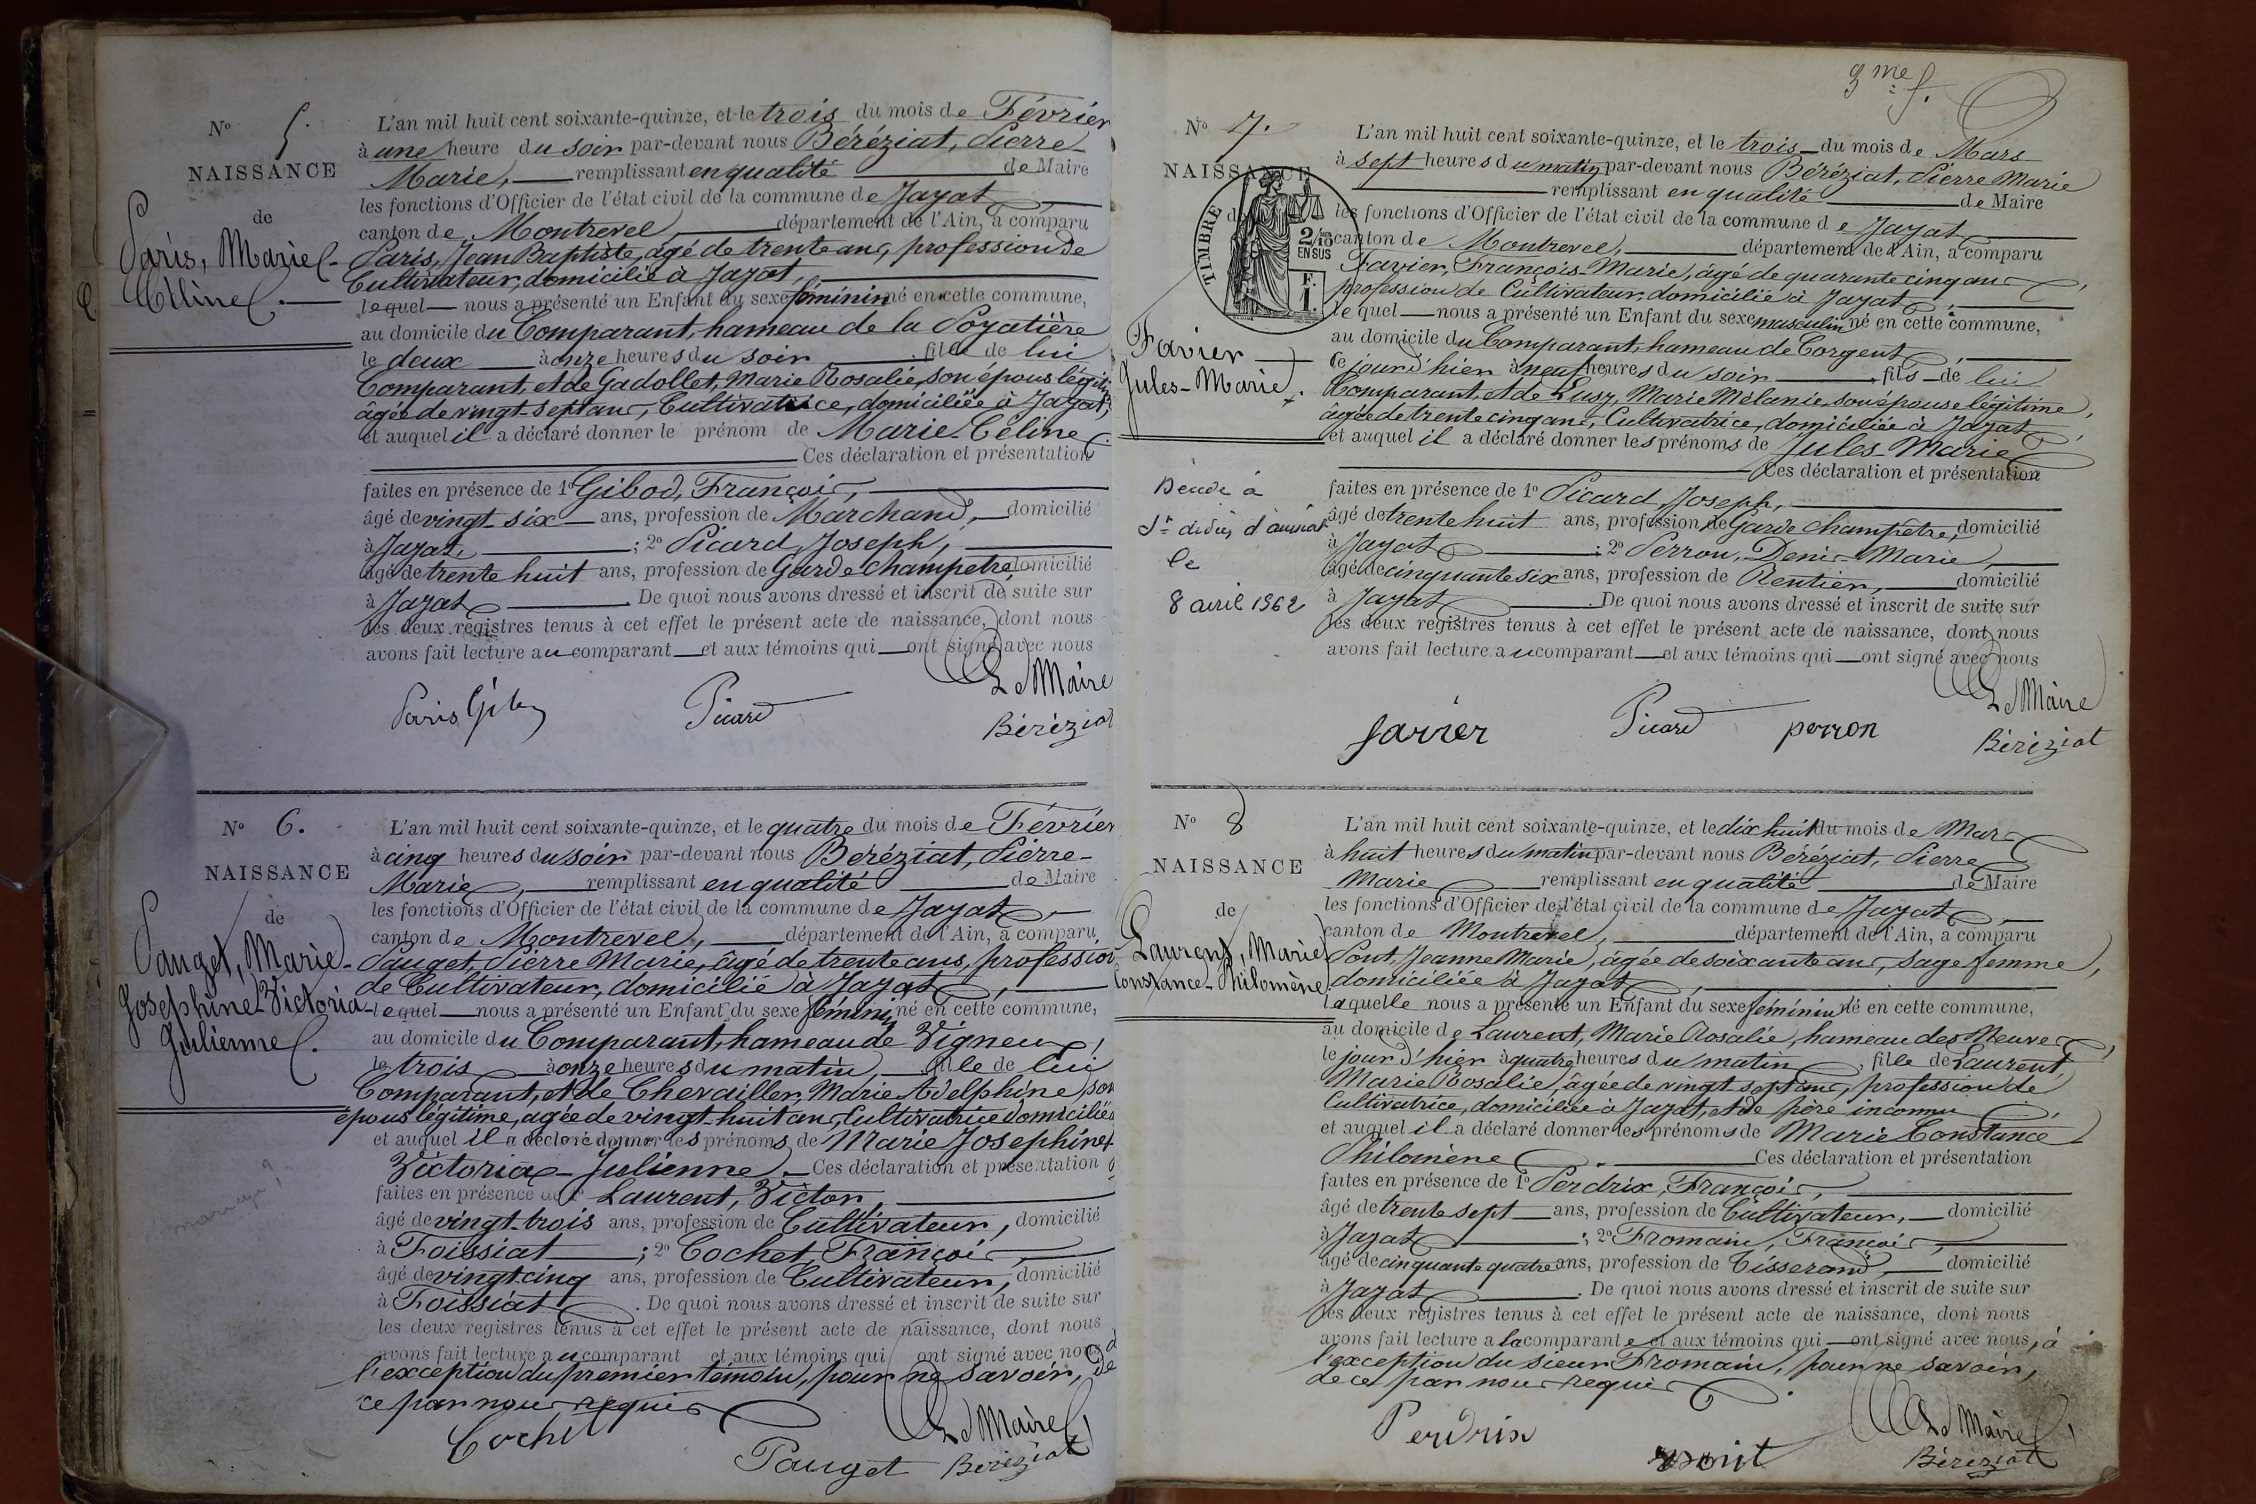 N° 5.
NAISSANCE
de
Paris, Marie-
Céline.
L'an mil huit cent soixante-quinze, et le trois du mois de Février
à une heure du soir par-devant nous Béréziat, Pierre
Marie, remplissant en qualité de Maire
les fonctions d'Officier de l'état civil de la commune de Jayat
canton de Montrevel, département de l'Ain, a comparu
Paris, Jean Baptiste, âgé de trente ans, profession de
Cultivateur, domicilié à Jayat,
lequel nous a présenté un Enfant du sexe féminin né en cette commune,
au domicile du Comparant, hameau de la Poyatière
le deux à onze heures du soir, fille de lui
Comparant, et de Gadollet, Marie Rosalie, son épous légiti
âgée de vingt-sept ans, Cultivatrice, domiciliée à Jayat,
et auquel il a déclaré donner le prénom de Marie-Céline.
Ces déclaration et présentation
faites en présence de 1° Gibod, François,
âgé de vingt-six ans, profession de Marchand, domicilié
à Jayat, ; 2° Picard, Joseph,
âgé de trente huit ans, profession de Garde champetre, domicilié
à Jayat. De quoi nous avons dressé et inscrit de suite sur
les deux registres tenus à cet effet le présent acte de naissance, dont nous
avons fait lecture au comparant et aux témoins qui ont signé avec nous
Le Maire
Paris Picard
Béréziat
N° 6.
NAISSANCE
de
Pauget, Marie-
Joséphine-Victoria-
Julienne.
L'an mil huit cent soixante-quinze, et le quatre du mois de Février
à cinq heures du soir par-devant nous Béréziat, Pierre-
Marie, remplissant en qualité de Maire
les fonctions d'Officier de l'état civil de la commune de Jayat
canton de Montrevel, département de l'Ain, a comparu
Pauget, Pierre Marie, âgé de trente ans, profession
de Cultivateur, domicilié à Jayat,
lequel nous a présenté un Enfant du sexe féminin né en cette commune,
au domicile du Comparant, hameau de Vigneux,
le trois à onze heures du matin, fille de lui
Comparant, et de Chevailler, Marie Adelphine, son
épous légitime, agée de vingt-huit ans, Cultivatrice domiciliée
et auquel il a déclaré donner les prénoms de Marie Josephine-
Victoria-Julienne. Ces déclaration et présentation
faites en présence de 1° Laurent, Victor,
âgé de vingt-trois ans, profession de Cultivateur, domicilié
à Foissiat ; 2° Cochet, François,
âgé de vingt-cinq ans, profession de Cultivateur, domicilié
à Foissiat. De quoi nous avons dressé et inscrit de suite sur
les deux registres tenus à cet effet le présent acte de naissance, dont nous
avons fait lecture au comparant et aux témoins qui ont signé avec nous à
l'exception du premier témoin, pour ne savoir, de
ce par nous requis.
Le Maire
Cochet
Pauget Béréziat
3me f.
N° 7.
NAISSANCE
de
TIMBRE
2/10 EN SUS
F. 1.
Favier
Jules-Marie.
Décédé à
St didier d'aussiat
le
8 avril 1962
L'an mil huit cent soixante-quinze, et le trois du mois de Mars
à sept heures du matin par-devant nous Béréziat, Pierre Marie
remplissant en qualité de Maire
les fonctions d'Officier de l'état civil de la commune de Jayat
canton de Montrevel, département de l'Ain, a comparu
Favier, François-Marie, âgé de quarante cinq ans,
profession de Cultivateur, domicilié à Jayat,
lequel nous a présenté un Enfant du sexe masculin né en cette commune,
au domicile du Comparant, hameau de Corgent,
le jour d'hier à neuf heures du soir, fils de lui
Comparant, et de Lusy, Marie Mélanie, son épouse légitime,
âgée de trente cinq ans, Cultivatrice, domiciliée à Jayat,
et auquel il a déclaré donner les prénoms de Jules-Marie
Ces déclaration et présentation
faites en présence de 1° Picard, Joseph,
âgé de trente huit ans, profession de Garde champetre, domicilié
à Jayat ; 2° Perron, Denis-Marie,
âgé de cinquante six ans, profession de Rentier, domicilié
à Jayat. De quoi nous avons dressé et inscrit de suite sur
les deux registres tenus à cet effet le présent acte de naissance, dont nous
avons fait lecture au comparant et aux témoins qui ont signé avec nous
Le Maire
favier Picard perron
Béréziat
N° 8
NAISSANCE
de
Laurent, Marie
Constance-Philomène
L'an mil huit cent soixante-quinze, et le dix huit du mois de Mars
à huit heures du matin par-devant nous Béréziat, Pierre
Marie remplissant en qualité de Maire
les fonctions d'Officier de l'état civil de la commune de Jayat
canton de Montrevel, département de l'Ain, a comparu
Pont, Jeanne Marie, âgée de soixante ans, sage femme,
domiciliée à Jayat,
laquelle nous a présenté un Enfant du sexe féminin né en cette commune,
au domicile de Laurent, Marie Rosalie, hameau des Meuves,
le jour d'hier à quatre heures du matin, fille de Laurent
Marie Rosalie, âgée de vingt sept ans, profession de
Cultivatrice, domiciliée à Jayat, et de père inconnu,
et auquel il a déclaré donner les prénoms de Marie Constance
Philomène. Ces déclaration et présentation
faites en présence de 1° Perdrix, François,
âgé de trente sept ans, profession de Cultivateur, domicilié
à Jayat ; 2° Fromain, François,
âgé de cinquante quatre ans, profession de Tisserand, domicilié
à Jayat. De quoi nous avons dressé et inscrit de suite sur
les deux registres tenus à cet effet le présent acte de naissance, dont nous
avons fait lecture a la comparante et aux témoins qui ont signé avec nous, à
l'exception du sieur Fromain, pour ne savoir,
de ce par nous requis.
Le Maire
Perdrix
Béréziat